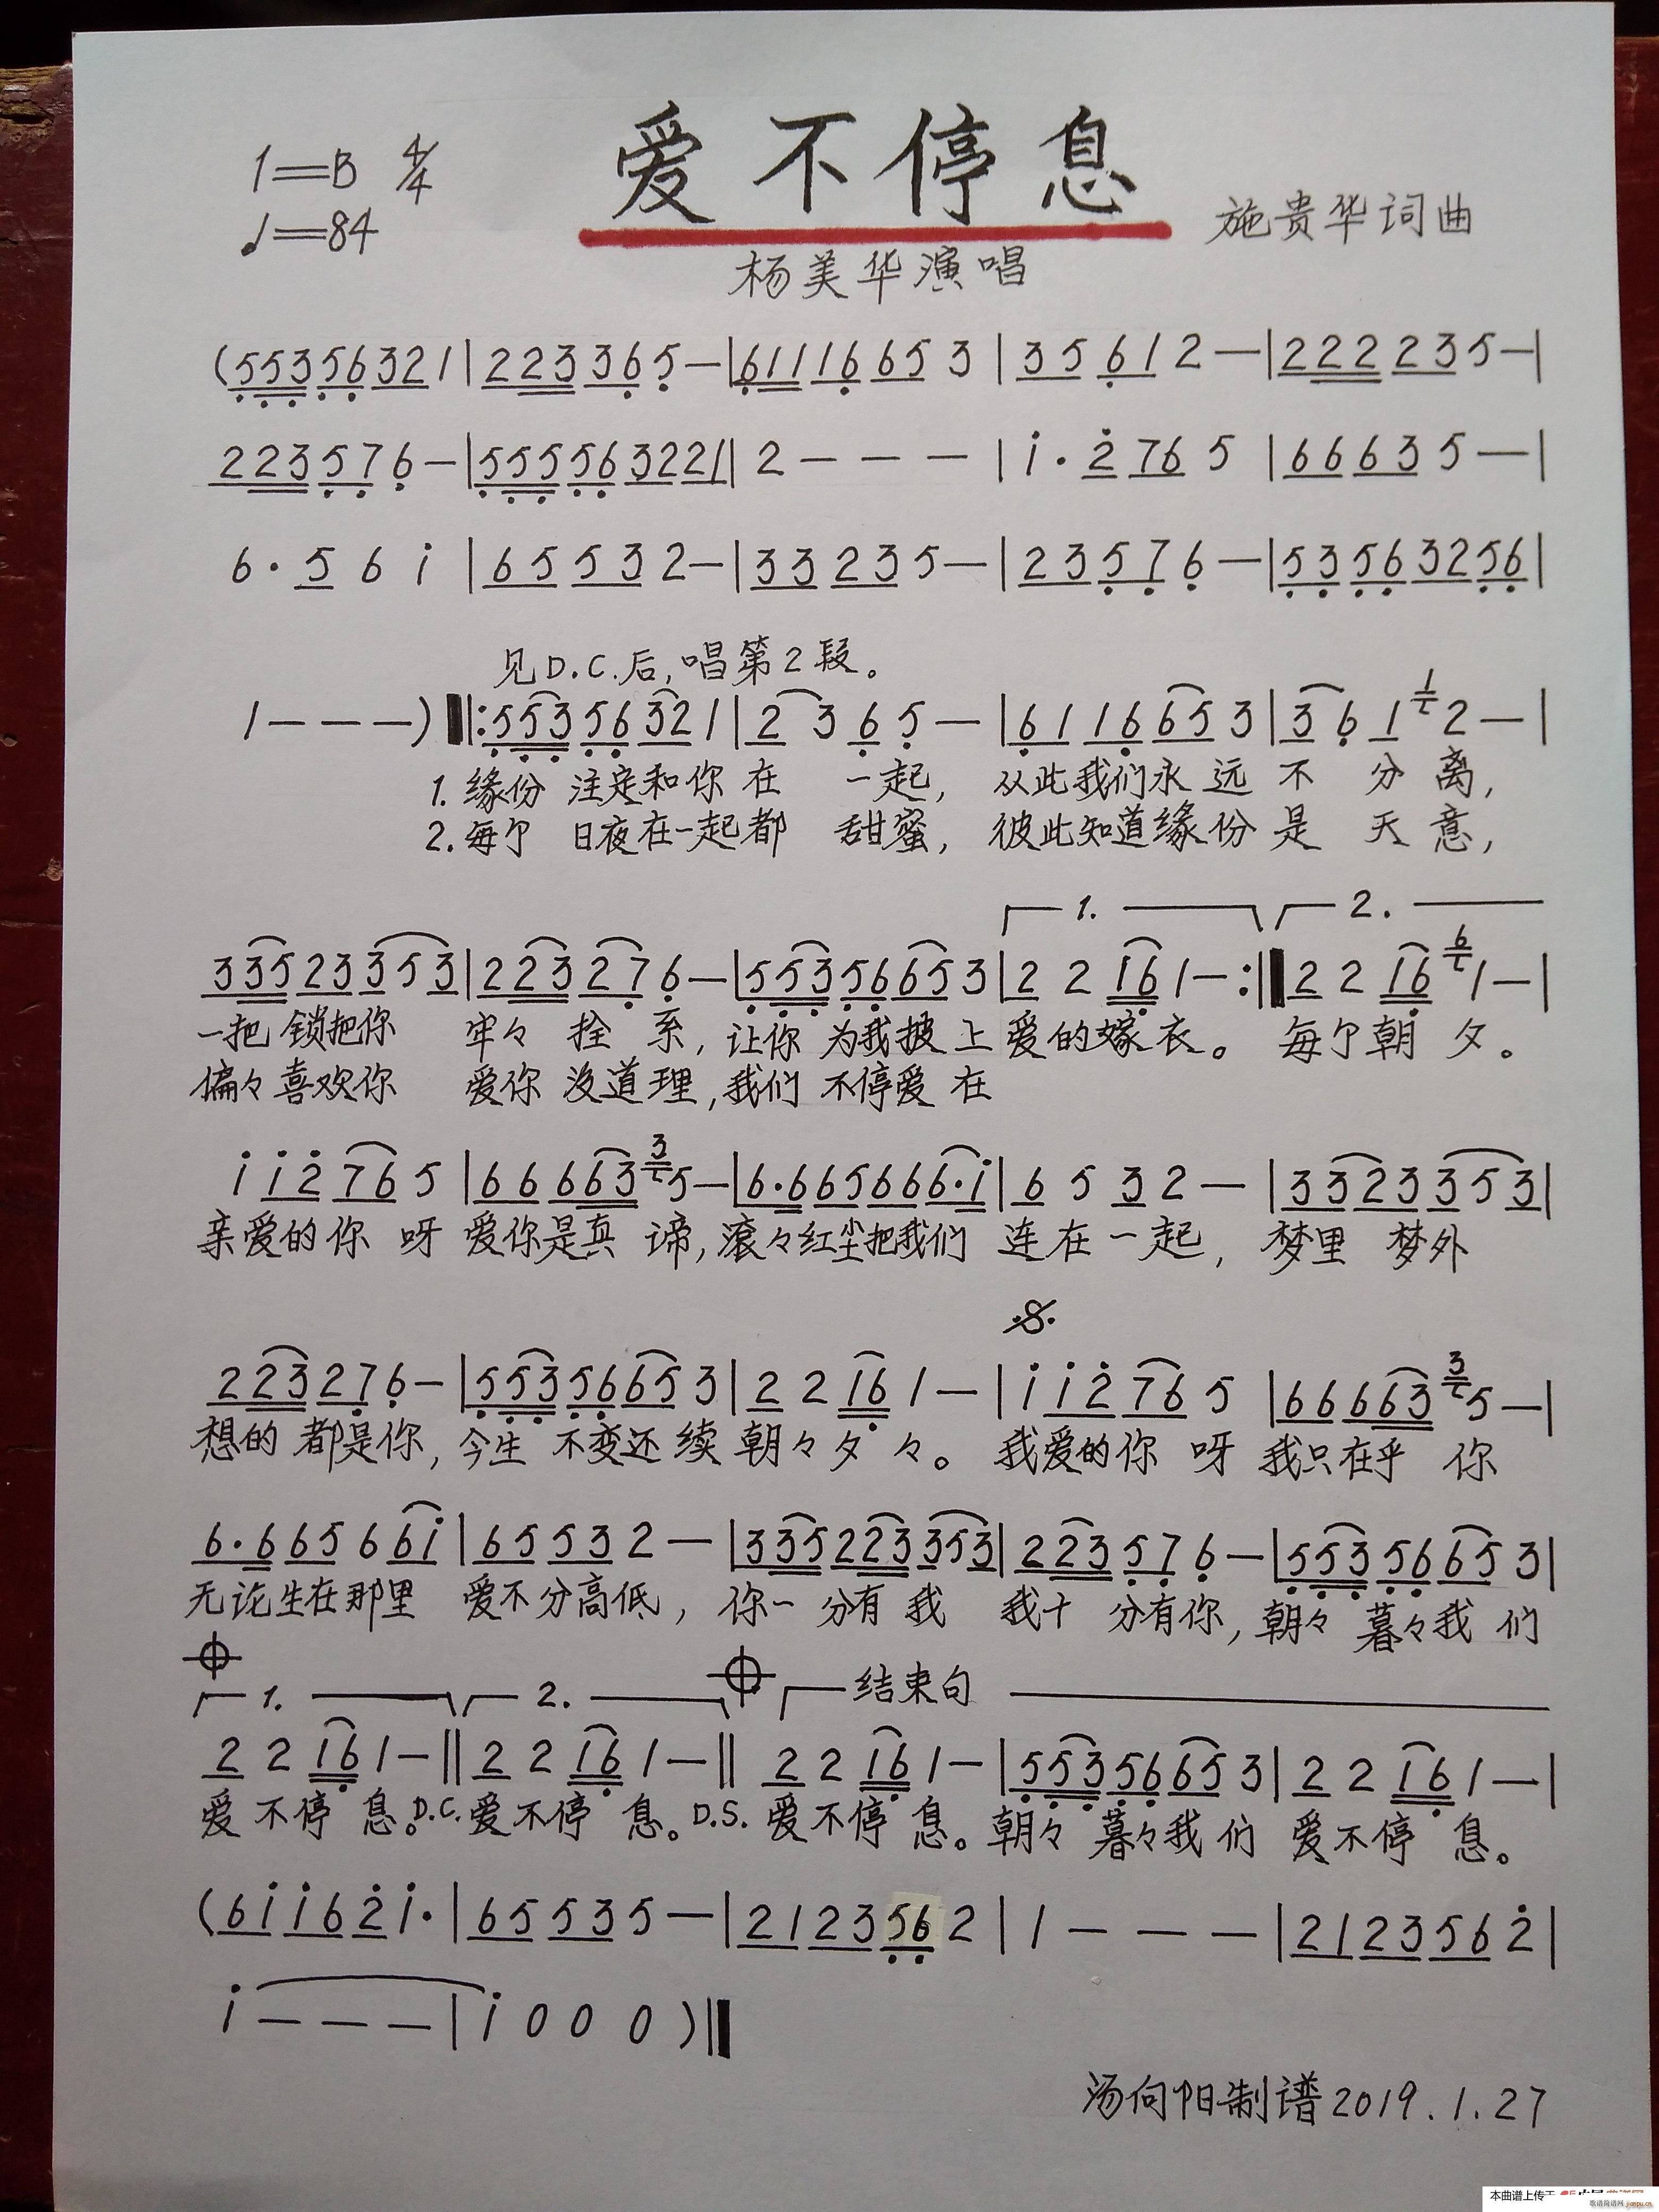 爱不停息
1=B 4/4
♩=84
施贵华词曲
杨美华演唱
(5 5 3 5 6 3 2 1 | 2 2 3 3 6 5 — | 6 1 1 1 6 6 5 3 | 3 5 6 1 2 — | 2 2 2 2 3 5 — |
2 2 3 5 7 6 — | 5 5 5 5 6 3 2 2 1 | 2 — — — | i · 2 7 6 5 | 6 6 6 3 5 — |
6 · 5 6 i | 6 5 5 3 2 — | 3 3 2 3 5 — | 2 3 5 7 6 — | 5 3 5 6 3 2 5 6 |
见D.C.后,唱第2段。
1 — — — ) ‖: 5 5 3 5 6 3 2 1 | 2 3 6 5 — | 6 1 1 6 6 5 3 | 3 6 1 1 2 — |
1. 缘份 注定和你 在 一起, 从此我们永 远 不 分 离,
2. 每个 日夜在一起都 甜蜜, 彼此知道缘 份 是 天 意,
1. 2.
3 3 5 2 3 3 5 3 | 2 2 3 2 7 6 — | 5 5 3 5 6 6 5 3 | 2 2 1 6 1 — :‖ 2 2 1 6 6 1 — |
一把 锁把你 牢々 拴 系, 让你 为我披 上 爱的嫁 衣。 每个朝 夕。
偏々喜欢你 爱你 没道理, 我们 不停爱 在
i i 2 7 6 5 | 6 6 6 6 3 3 5 — | 6 · 6 6 5 6 6 6 · i | 6 5 3 2 — | 3 3 2 3 3 5 3 |
亲爱的你 呀 爱你是真 谛, 滚々红尘把我们 连在一起, 梦里 梦外
𝄋
2 2 3 2 7 6 — | 5 5 3 5 6 6 5 3 | 2 2 1 6 1 — | i i 2 7 6 5 | 6 6 6 6 3 3 5 — |
想的 都是你, 今生 不变还 续 朝々夕 々。 我爱的你 呀 我只在乎 你
6 · 6 6 5 6 6 i | 6 5 5 3 2 — | 3 3 5 2 2 3 3 5 3 | 2 2 3 5 7 6 — | 5 5 3 5 6 6 5 3 |
无论生在那里 爱不分高低, 你一 分有 我 我十 分有你, 朝々 暮々我 们
1. 2. 结束句
2 2 1 6 1 — ‖ 2 2 1 6 1 — ‖ 2 2 1 6 1 — | 5 5 3 5 6 6 5 3 | 2 2 1 6 1 — |
爱不停 息。D.C. 爱不停 息。D.S. 爱不停 息。朝々 暮々我 们 爱不停 息。
(6 i i 6 2 i · | 6 5 5 3 5 — | 2 1 2 3 5 6 2 | 1 — — — | 2 1 2 3 5 6 2 |
i — — — | i 0 0 0 ) ‖
汤向阳制谱2019.1.27
本曲谱上传于
歌谱简谱网 jianpu.cn